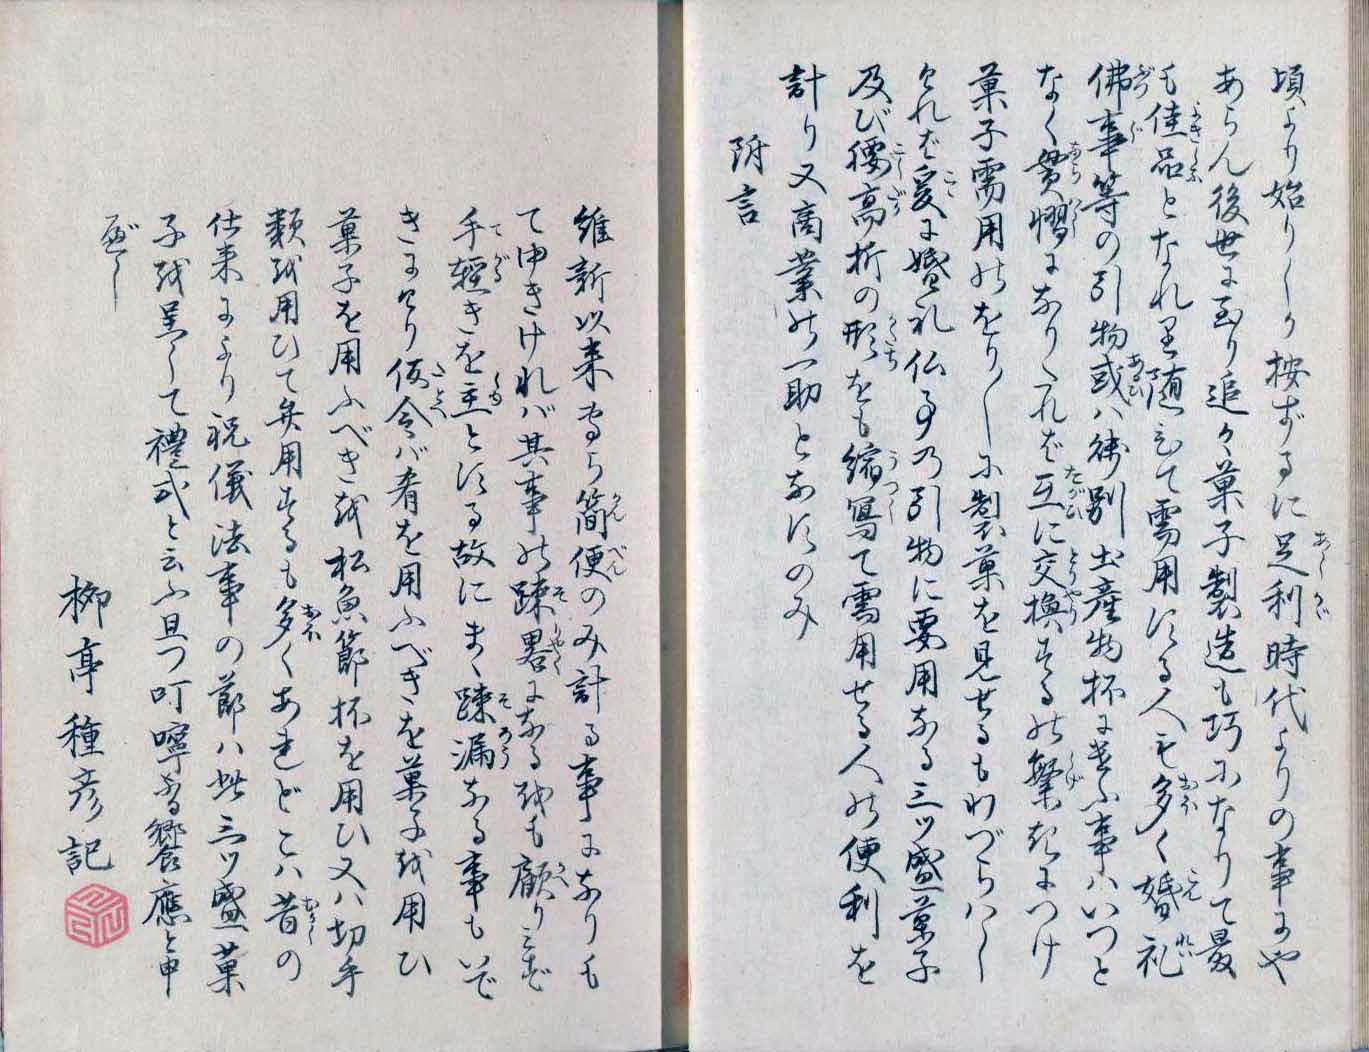 頃より始りしか按ずるに足利時代よりの事にや
あらん後世に至り追々菓子製造も巧になりて最
も佳品となれり随ひて需用する人も多く婚礼
佛事等の引物或ハ餞別土産物抔に遣ふ事ハいつと
なく貫慣になりたれど互に交換するの繁きにつけ
菓子需用のをり〳〵に製菓を見せるもわづらハし
されど爰に婚礼仏事の引物に要用なる三ツ盛菓子
及び腰高折の形をも縮寫て需用せる人の便利を
計り又商業の一助となすのみ
附言
維新以来専ら簡便のみ計る事になりも
てゆきけれバ其事の踈畧になるをも顧りミず
手軽きを主とする故にまゝ踈漏なる事もいで
きにけり仮令バ肴を用ふべきを菓子を用ひ
菓子を用ふべきを松魚節抔を用ひ又ハ切手
類を用ひて弁用するも多くあれどこハ昔の
仕来により祝儀法事の節ハ此三ツ盛菓
子を呈して禮式と云ふ且つ叮嚀なる饗應と申
べし
柳亭種彦記